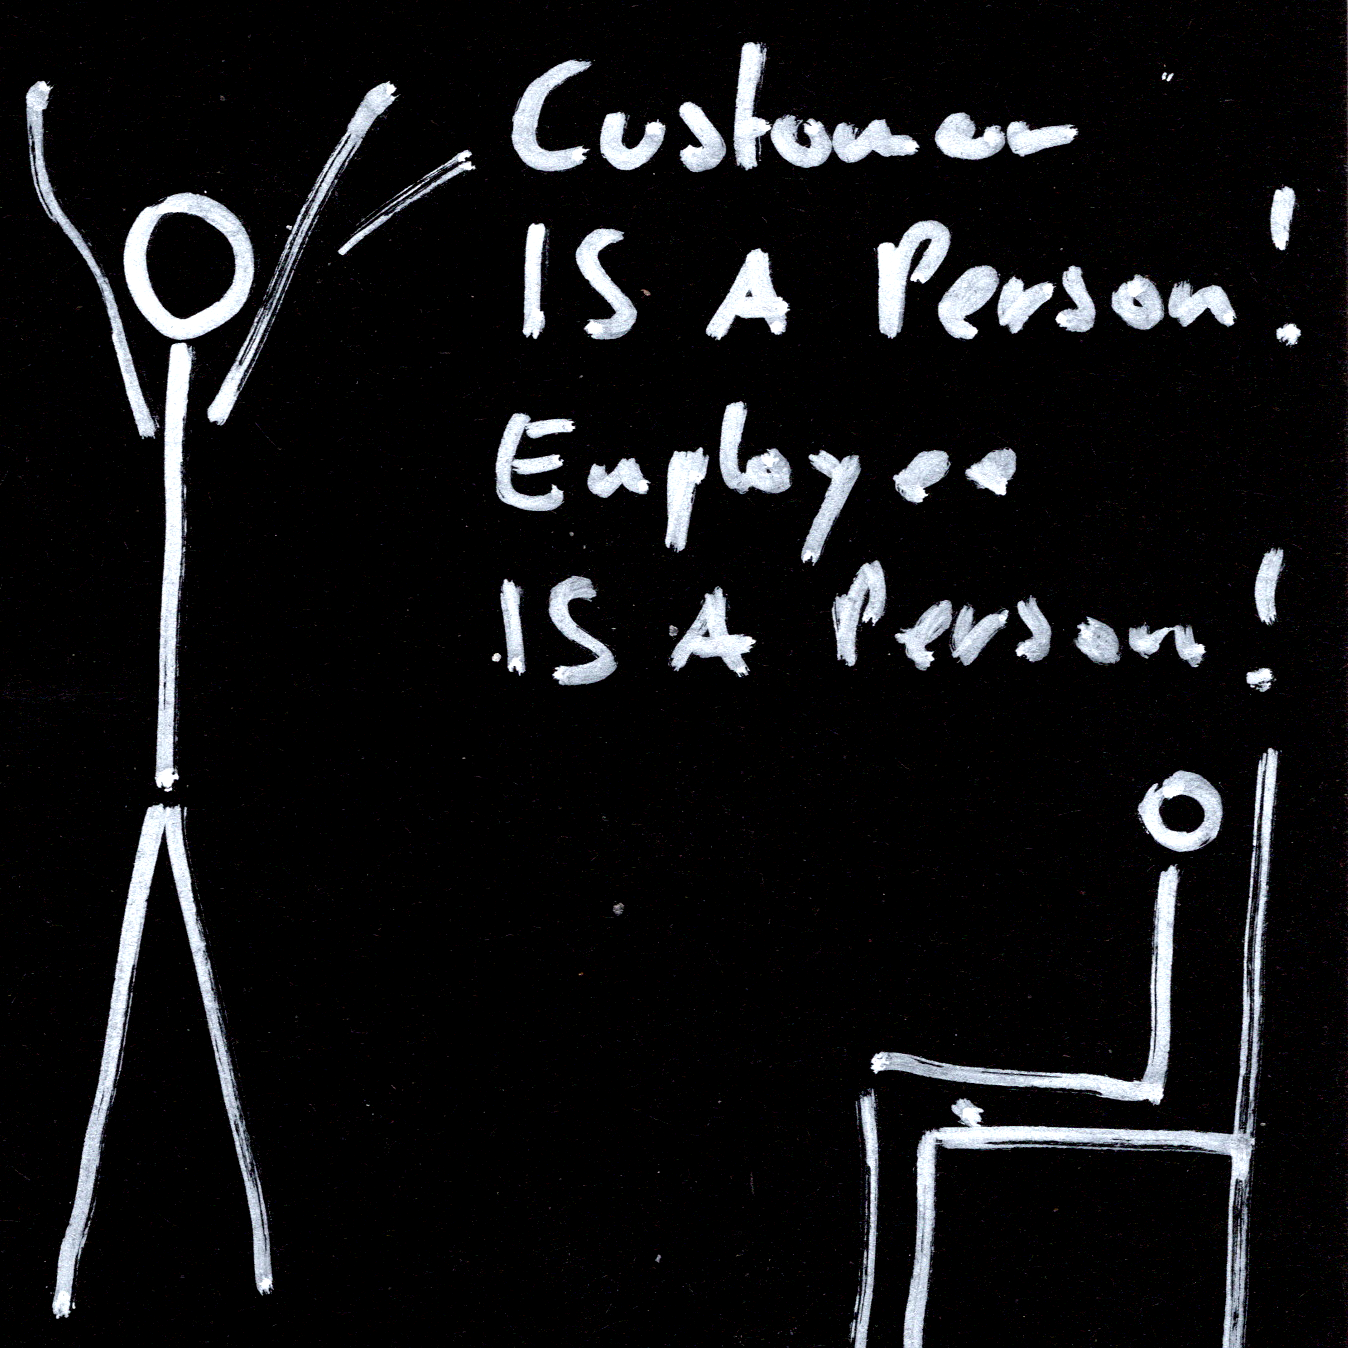 Customer
IS A Person!
Employee
IS A Person!